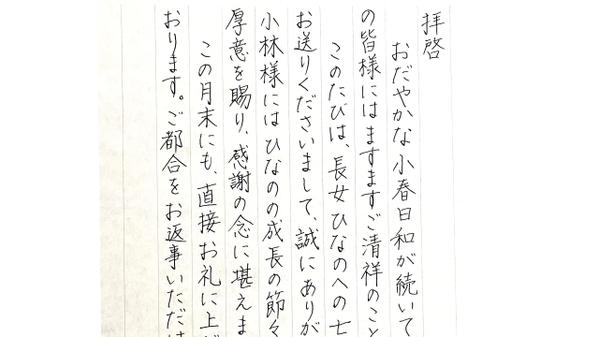 拝啓
おだやかな小春日和が続いて
の皆様にはますますご清祥のこと
このたびは、長女ひなのへの七
お送りくださいまして、誠にありが
小林様にはひなのの成長の節々
厚意を賜り、感謝の念に堪えま
この月末にも、直接お礼に上が
おります。ご都合をお返事いただけ